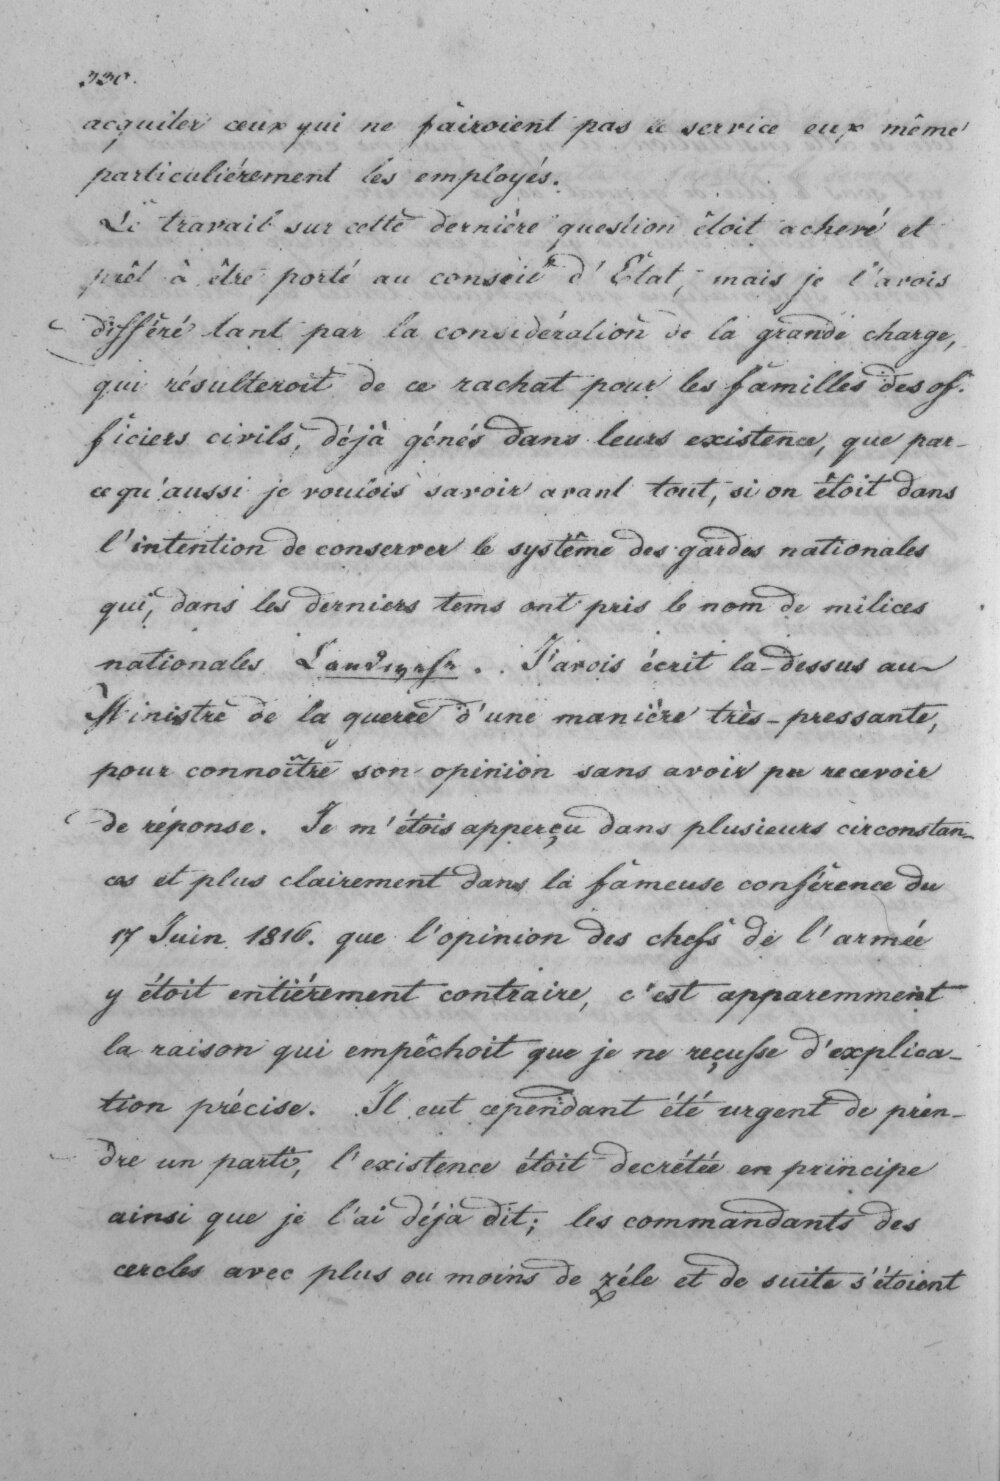 330.
acquiter ceux qui ne fairoient pas ce service eux même
particuliérement les employés.
Le travail sur cette derniére question étoit achevé et
prêt à être porté au conseil d'Etat, mais je l'avois
différé tant par la considération de la grande charge,
qui résulteroit de ce rachat pour les familles des of-
ficiers civils, déjà génés dans leurs existence, que par-
cequ'aussi je voulois savoir avant tout, si on étoit dans
l'intention de conserver le systême des gardes nationales
qui, dans les derniers tems ont pris le nom de milices
nationales Landwehr. J'avois écrit la-dessus au
Ministre de la guerre d'une maniére très-pressante,
pour connoître son opinion sans avoir pu recevoir
de réponse. Je m'étois apperçu dans plusieurs circonstan-
ces et plus clairement dans la fameuse conférence du
17 Juin 1816. que l'opinion des chefs de l'armée
y étoit entiérement contraire, c'est apparemment
la raison qui empêchoit que je ne reçusse d'explica-
tion précise. Il eut cependant été urgent de pren-
dre un parti, l'existence étoit decrétée en principe
ainsi que je l'ai déja dit; les commandants des
cercles avec plus ou moins de zéle et de suite s'étoient